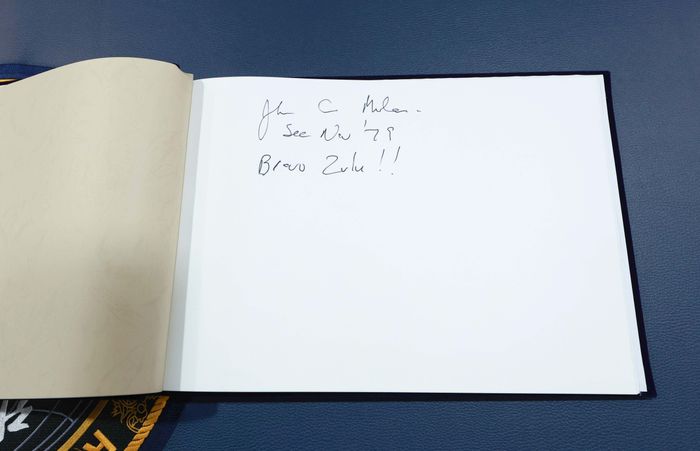 John C Phelan
Sec Nav '79
Bravo Zulu!!